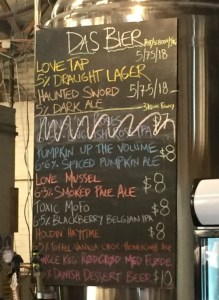 DAS BIER
LOVE TAP 5/75/18
5% DRAUGHT LAGER
HAUNTED SWORD 5/7.5/18
5% DARK ALE
PUMPKIN UP THE VOLUME $8
6.6% SPICED PUMPKIN ALE
LOVE MUSSEL $8
6.3% SMOKED PALE ALE
TOXIC MOFO $8
6.5% BLACKBERRY BELGIAN IPA
HOLDIN HAYTIME $8
VANILLA
RØDGRØD MED FLØDE
DANISH DESSERT BEER $10